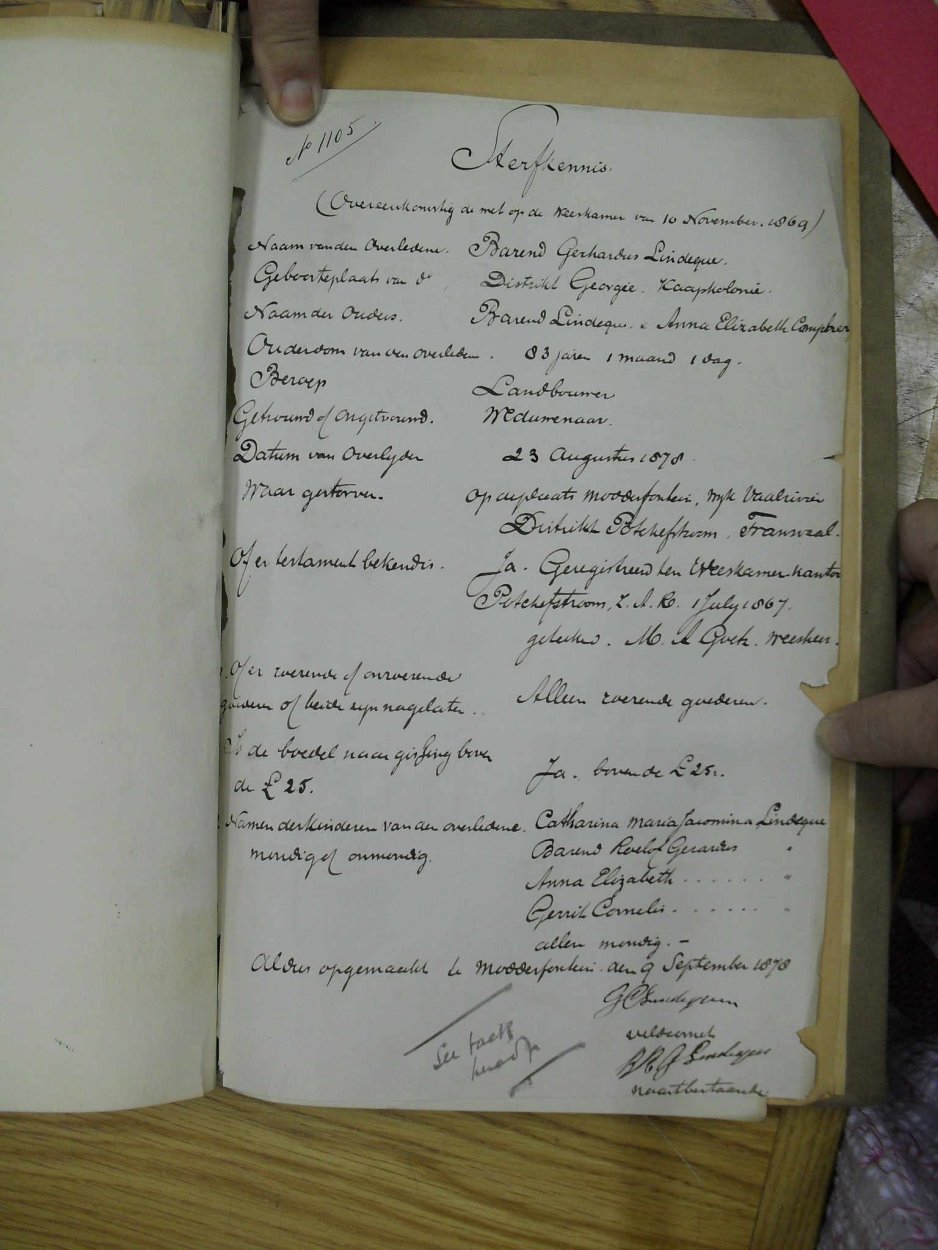 No 1105
Sterfkennis.
(Overeenkomstig de wet op de Weeskamer van 10 November 1869)
Naam van den Overledene. Barend Gerhardus Lindeque.
Geboorteplaats van do. Distrikt Georgie. Kaapkolonie.
Naam der Ouders. Barend Lindeque. & Anna Elizabeth
Ouderdom van den overleden. 83 jaren 1 maand 1 dag.
Beroep Landbouwer
Getrouwd of ongetrouwd. Weduwenaar.
Datum van Overlyden 23 Augustus 1878
Waar gestorven. op de plaats Modderfontein, wyk Vaalrivier
Distrikt Potchefstroom. Transvaal.
Of er testament bekend is. Ja. Geregistreerd ten Weeskamer kantoor
Potchefstroom, Z. A. R. 1 July 1867.
geteekend. M. A Goetz. Weesheer.
Of er roerende of onroerende
goederen of beide zyn nagelaten.. Alleen roerende goederen.
Is de boedel naar gissing boven
de £25. Ja. boven de £25.
Namen der kinderen van den overledene. Catharina Maria Jacomina Lindeque
mondig of onmondig. Barend Roelof Gerardus "
Anna Elizabeth ...... "
Gerrit Cornelis ...... "
allen mondig. -
Aldus opgemaakt te Modderfontein. den 9 September 1878
G C Lindeque
veldcornet
B R G Lindeque
naastbestaande
See back